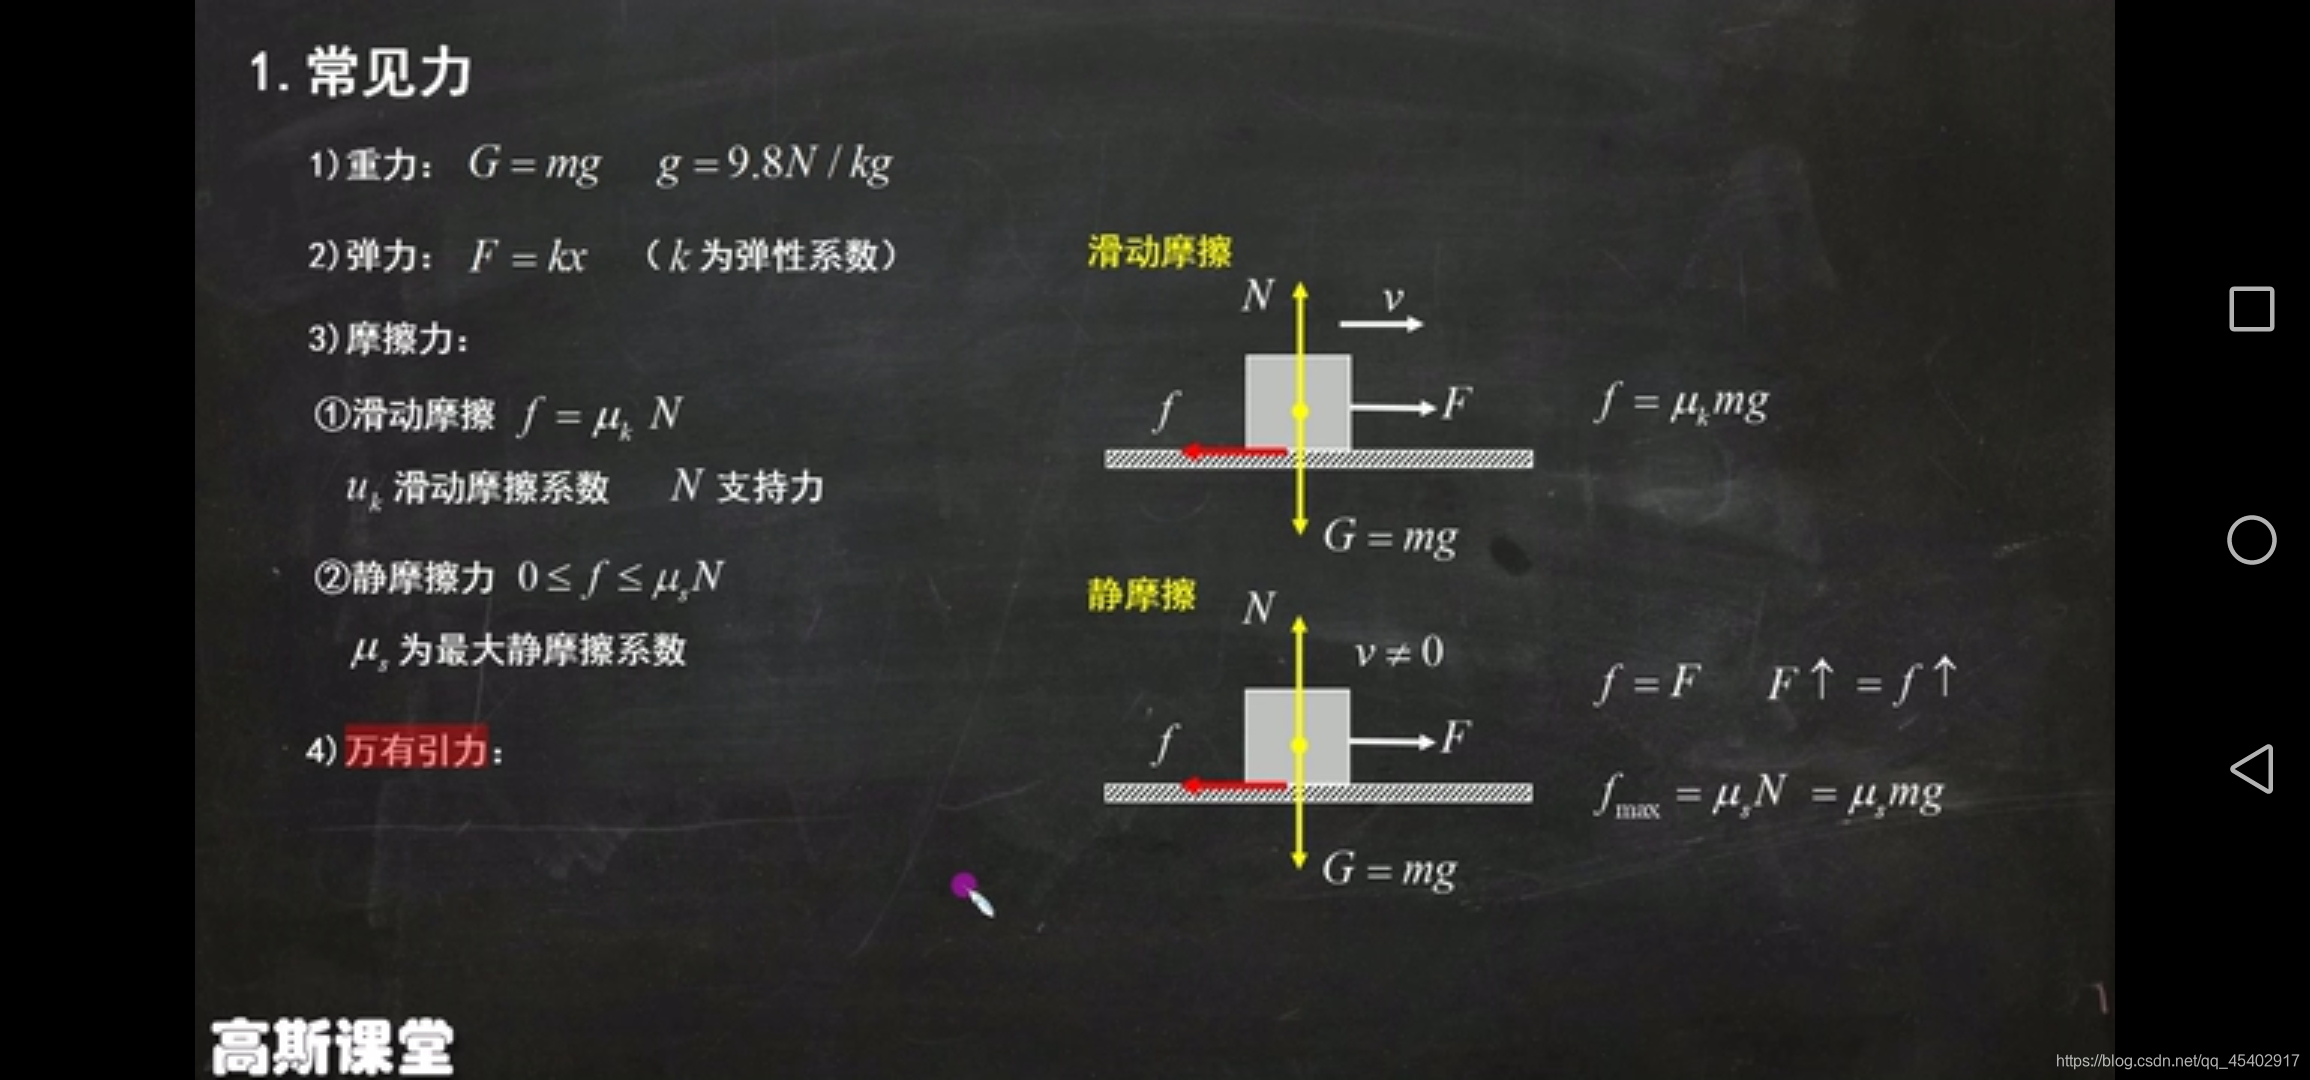 1.常见力
1)重力： G = mg g = 9.8N / kg
2)弹力： F = kx （k 为弹性系数）
3)摩擦力：
①滑动摩擦 f = μₖ N
uₖ 滑动摩擦系数 N 支持力
②静摩擦力 0 ≤ f ≤ μₛN
μₛ 为最大静摩擦系数
4)万有引力：
滑动摩擦
N
v
f
F
f = μₖmg
G = mg
静摩擦
N
v ≠ 0
f = F F↑ = f↑
f
F
fmax = μₛN = μₛmg
G = mg
高斯课堂
https://blog.csdn.net/qq_45402917